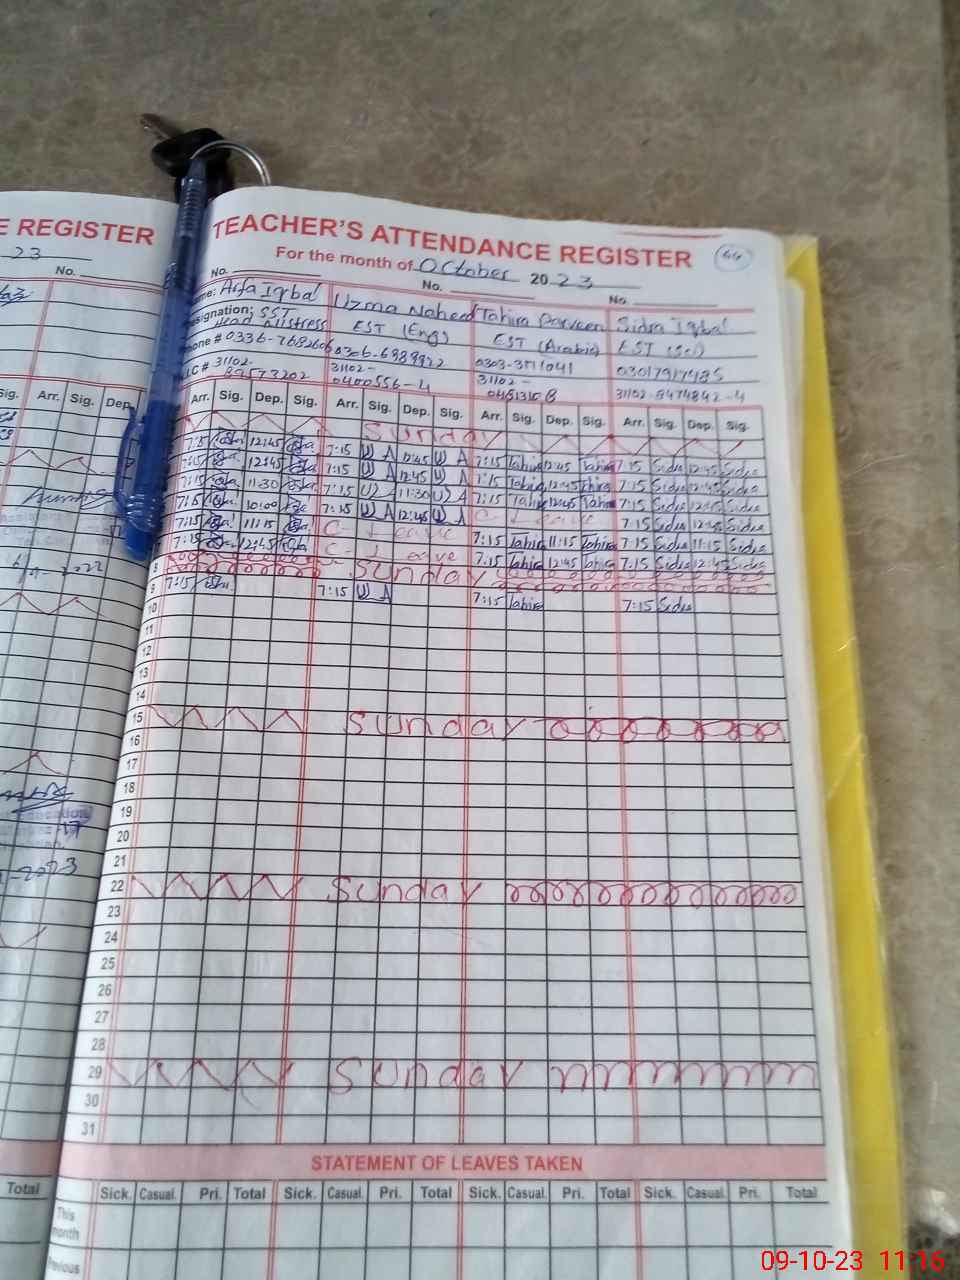 E REGISTER
23
No.
Sig. Arr. Sig. Dep.
Total
TEACHER'S ATTENDANCE REGISTER
64
For the month of October 2023
No. No. No.
Name: Arfa Iqbal Uzma Naheed Tahira Parveen Sidra Iqbal
Designation; SST EST (Eng) EST (Arabic) EST (Sci)
Head Mistress
Phone # 0336-7682606 0306-6989922 0303-3711041 03017917485
31102- 31102- 31102- 31102-8474842-4
0400556-4
Arr. Sig. Dep. Sig. Arr. Sig. Dep. Sig. Arr. Sig. Dep. Sig. Arr. Sig. Dep. Sig.
Sunday
7:15 12:45 7:15 U A 12:45 U A 7:15 Tahira 12:45 Tahira 7:15 Sidra 12:45 Sidra
7:15 12:45 7:15 U A 12:45 U A 7:15 Tahira 12:45 Tahira 7:15 Sidra 12:45 Sidra
7:15 11:30 7:15 U A 11:30 U A 7:15 Tahira 12:45 Tahira 7:15 Sidra 12:45 Sidra
7:15 10:00 7:15 U A 12:45 U A C - Leave 7:15 Sidra 12:45 Sidra
7:15 11:15 C - Leave 7:15 Tahira 11:15 Tahira 7:15 Sidra 11:15 Sidra
7:15 12:45 C - Leave 7:15 Tahira 12:45 Tahira 7:15 Sidra 12:45 Sidra
8 Sunday
9 7:15 7:15 U A 7:15 Tahira 7:15 Sidra
10
11
12
13
14
15 Sunday
16
17
18
19
20
21
22 Sunday
23
24
25
26
27
28
29 Sunday
30
31
STATEMENT OF LEAVES TAKEN
Sick. Casual. Pri. Total Sick. Casual. Pri. Total Sick. Casual. Pri. Total Sick. Casual. Pri. Total
This month
Previous
09-10-23 11:16